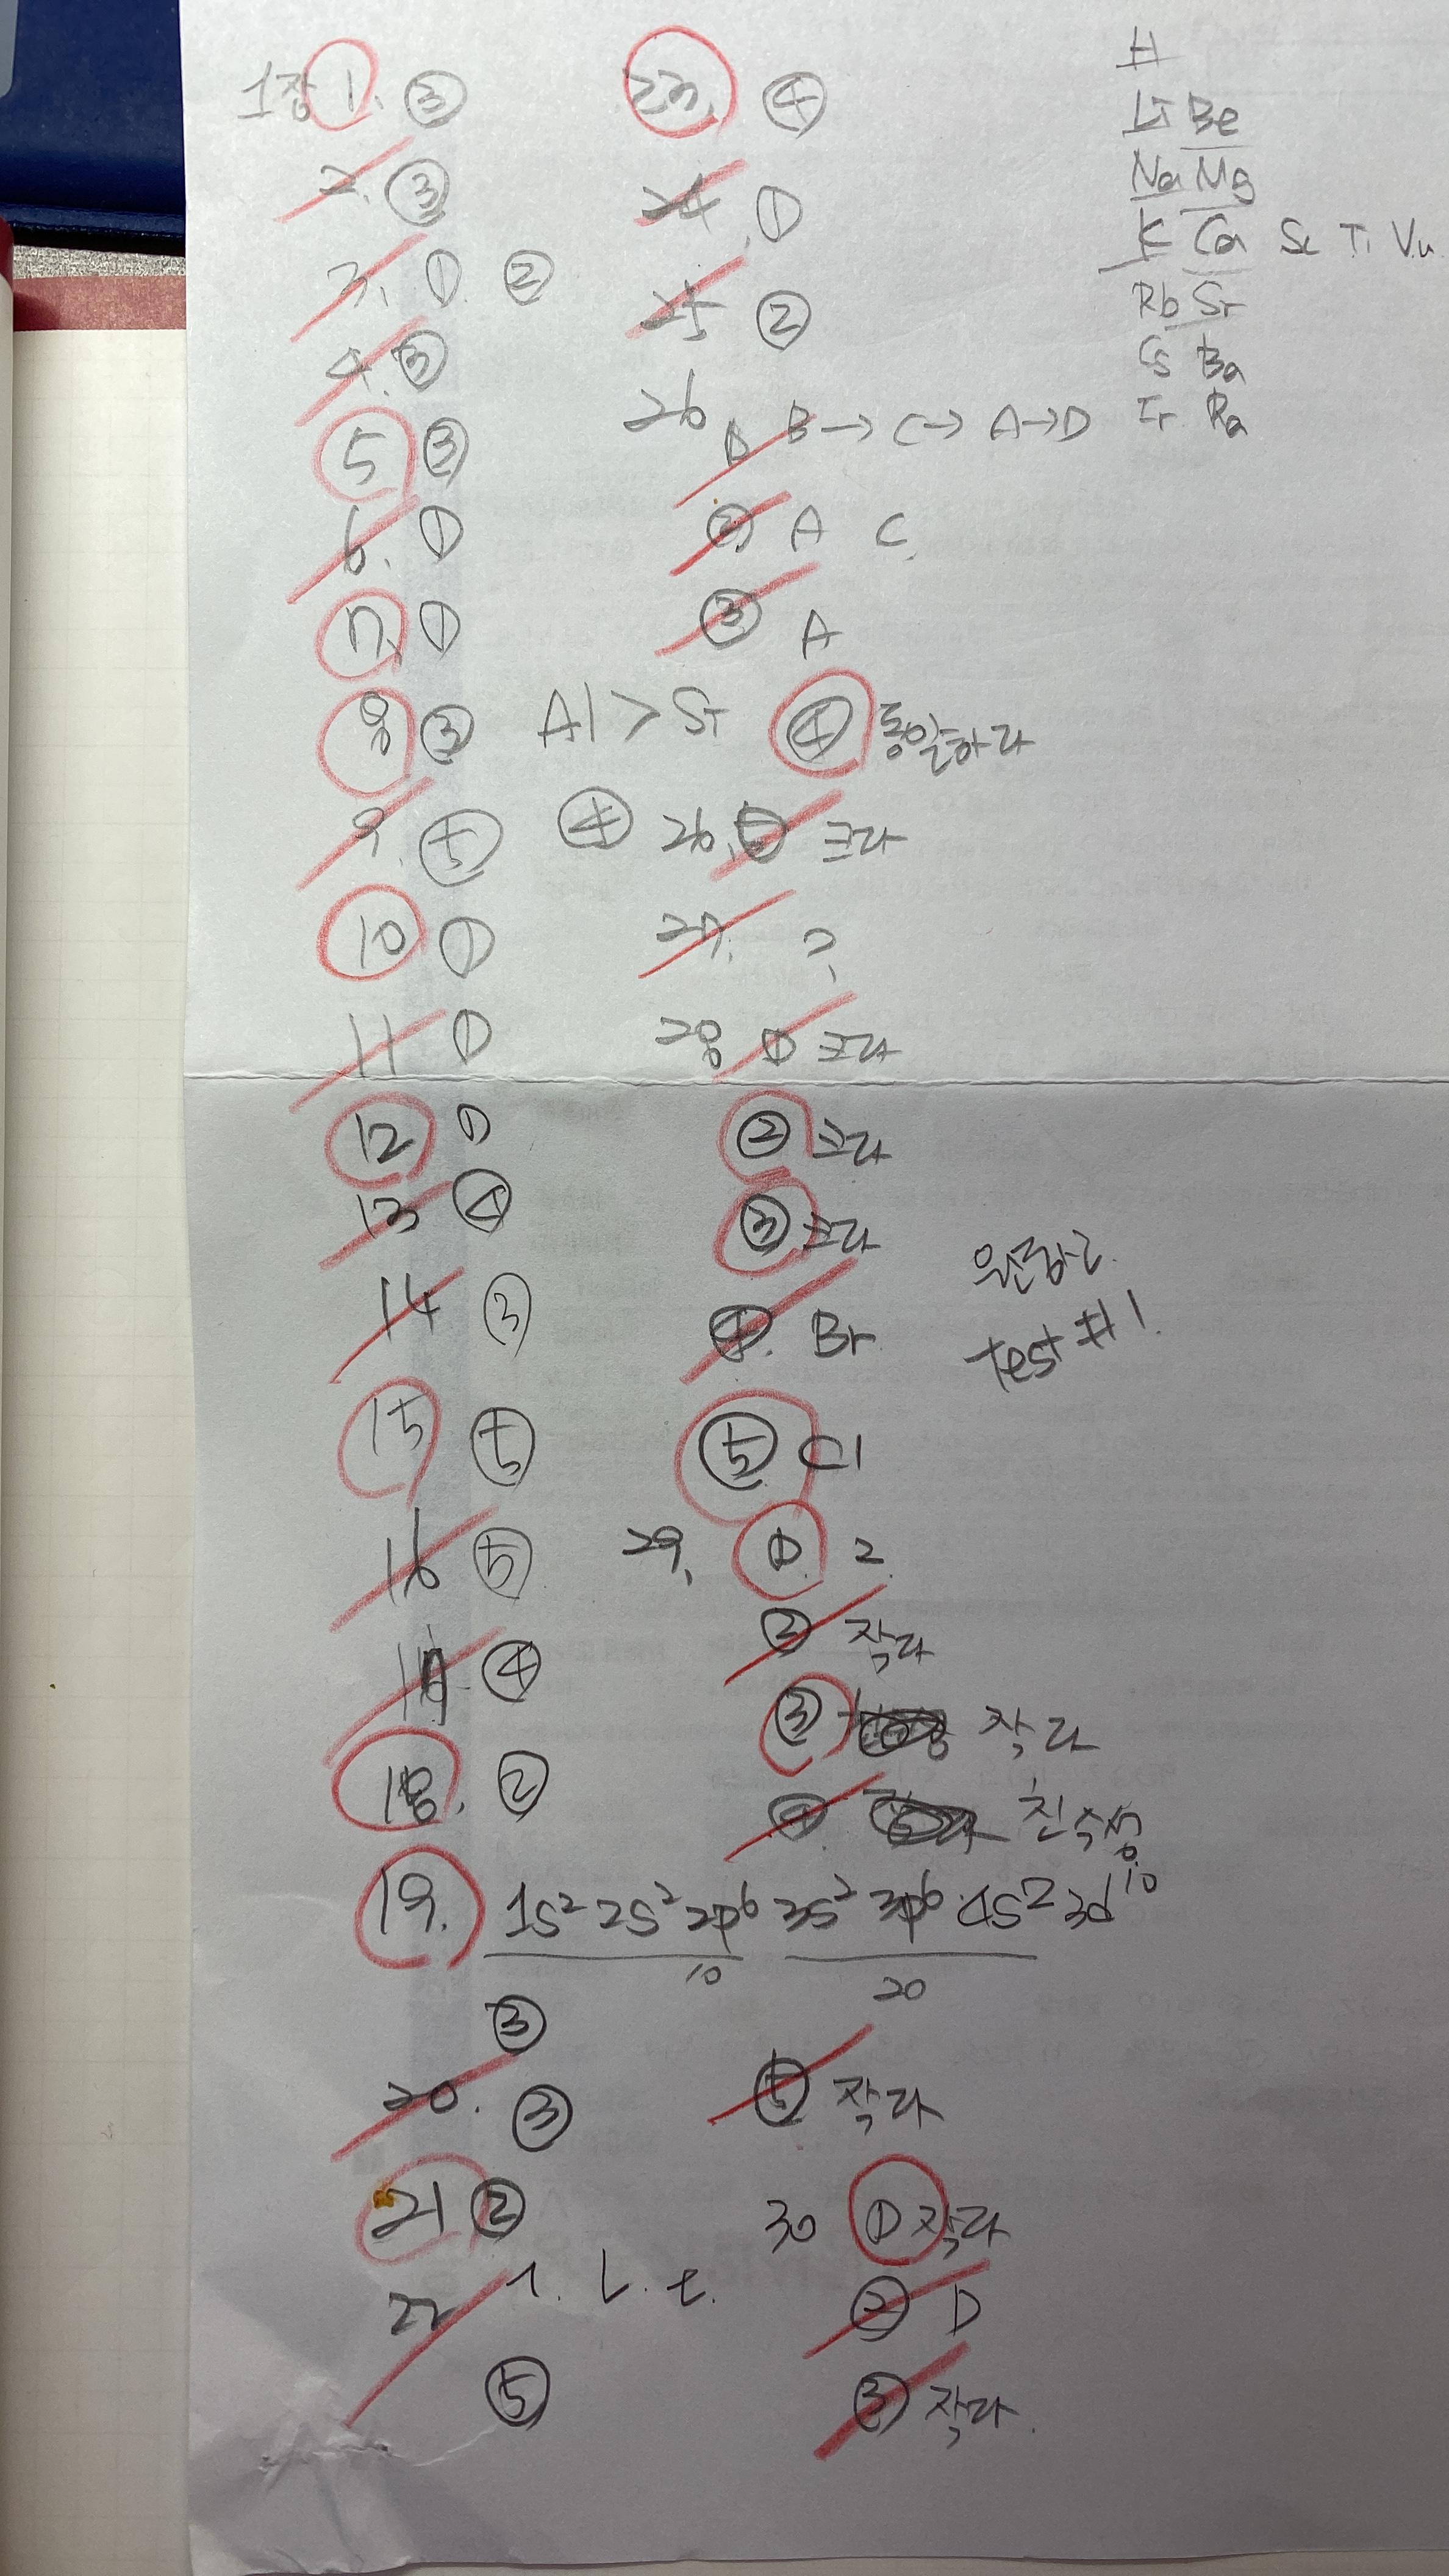 1장 1. ③
2. ③
3. ① ②
4. ③
5 ③
6. ①
7. ①
8 ③ Al > Sr
9. ⑤ ④
10 ①
11 ①
12 ①
13 ④
14 ③
15 ⑤
16 ⑤
17 ④
18. ②
19. 1s² 2s² 2p⁶ 3s² 3p⁶ 4s² 3d¹⁰
10 20
③
20. ③
21 ②
22 ㄱ. ㄴ. ㄷ.
⑤
23. ④
24. ①
25 ②
26 ① B → C → A → D
② A C
③ A
④ 동일하다
26. ⑤ 크다
27. ?
28 ① 크다
② 크다
③ 크다
④. Br
⑤ Cl
29. ① 2
② 작다
③ 작다
④. 친수성
⑤ 작다
30 ① 작다
② D
③ 작다.
H
Li Be
Na Mg
K Ca Sc Ti
Rb Sr
Cs Ba
Fr Ra
test #1.